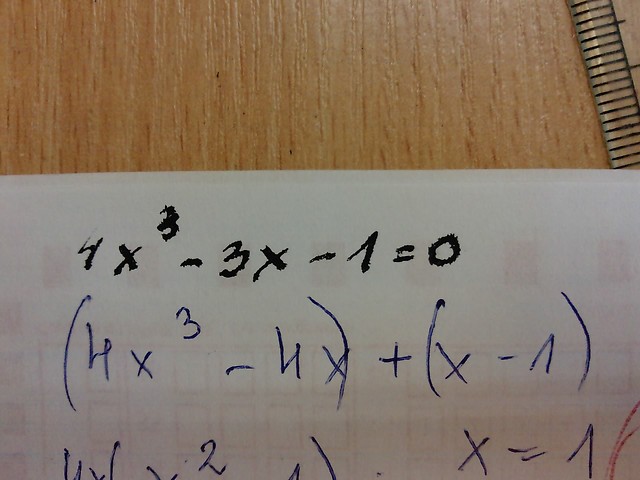 4x³ - 3x - 1 = 0
(4x³ - 4x) + (x - 1)
4x(x² - 1) x = 1